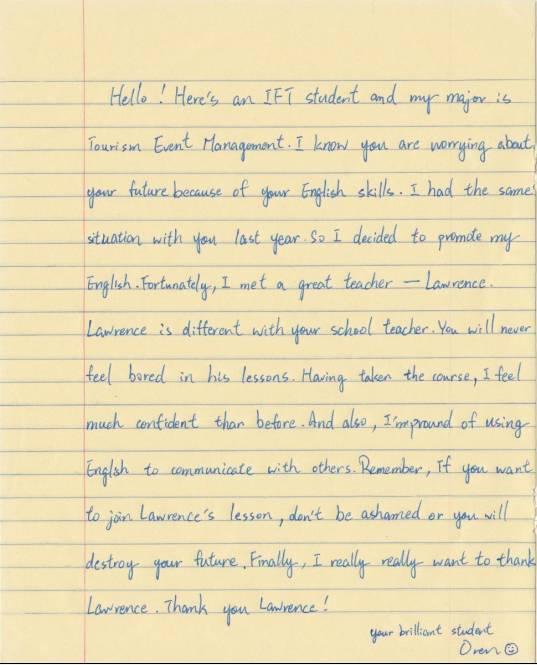 Hello! Here's an IFT student and my major is
Tourism Event Management. I know you are worrying about
your future because of your English skills. I had the same
situation with you last year. So I decided to promote my
English. Fortunately, I met a great teacher — Lawrence.
Lawrence is different with your school teacher. You will never
feel bored in his lessons. Having taken the course, I feel
much confident than before. And also, I'm pround of using
English to communicate with others. Remember, If you want
to join Lawrence's lesson, don't be ashamed or you will
destroy your future. Finally, I really really want to thank
Lawrence. Thank you Lawrence!
your brilliant student
Oren ☺